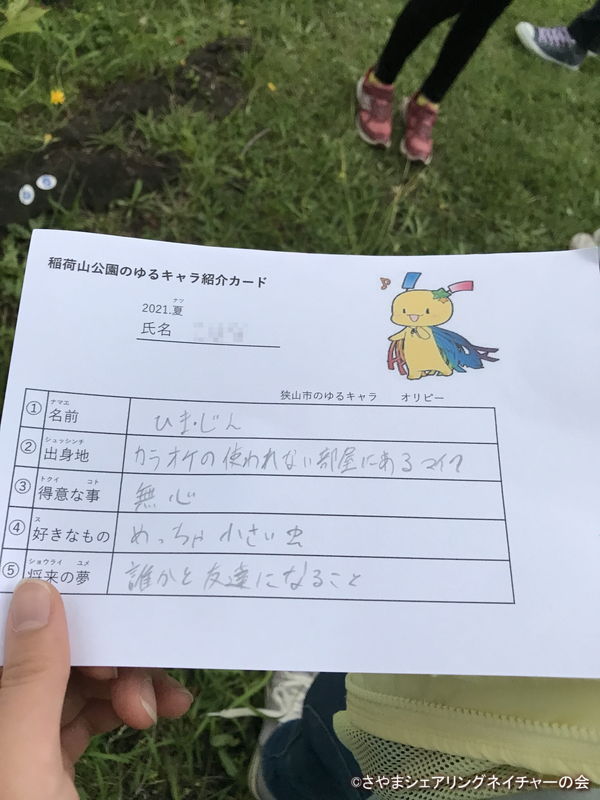 稲荷山公園のゆるキャラ紹介カード
2021.夏
ナツ
氏名
狭山市のゆるキャラ オリピー
① 名前 ナマエ ひま・じん
② 出身地 シュッシンチ カラオケの使われない部屋にあるマイク
③ 得意な事 トクイ コト 無心
④ 好きなもの ス めっちゃ小さい虫
⑤ 将来の夢 ショウライ ユメ 誰かと友達になること
©さやまシェアリングネイチャーの会